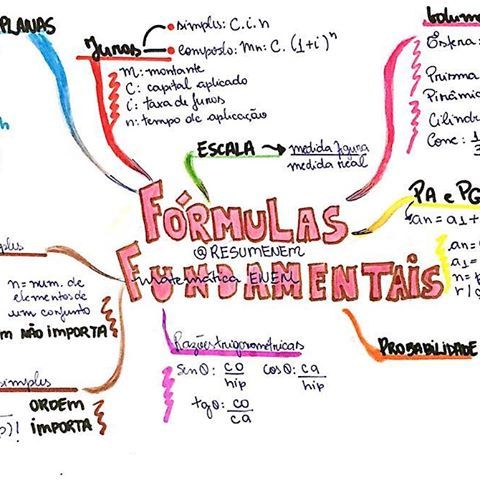 PLANAS
Juros
simples: C.i.n
composto: Mn: C.(1+i)ⁿ
M: montante
C: capital aplicado
i: taxa de juros
n: tempo de aplicação
ESCALA → medida figura
medida real
Volume
Esfera:
Prisma
Pirâmi
Cilind
Cone: 1/3
PA e PG
an = a1 +
an =
a1 =
n =
r /
FÓRMULAS
@RESUMENEM
FUNDAMENTAIS
Matemática ENEM
ples
n = num. de
elementos de
um conjunto
M NÃO IMPORTA
simples
p)!
ORDEM
IMPORTA
Razões trigonométricas
sen θ: co/hip cos θ: ca/hip
tg θ: co/ca
PROBABILIDADE